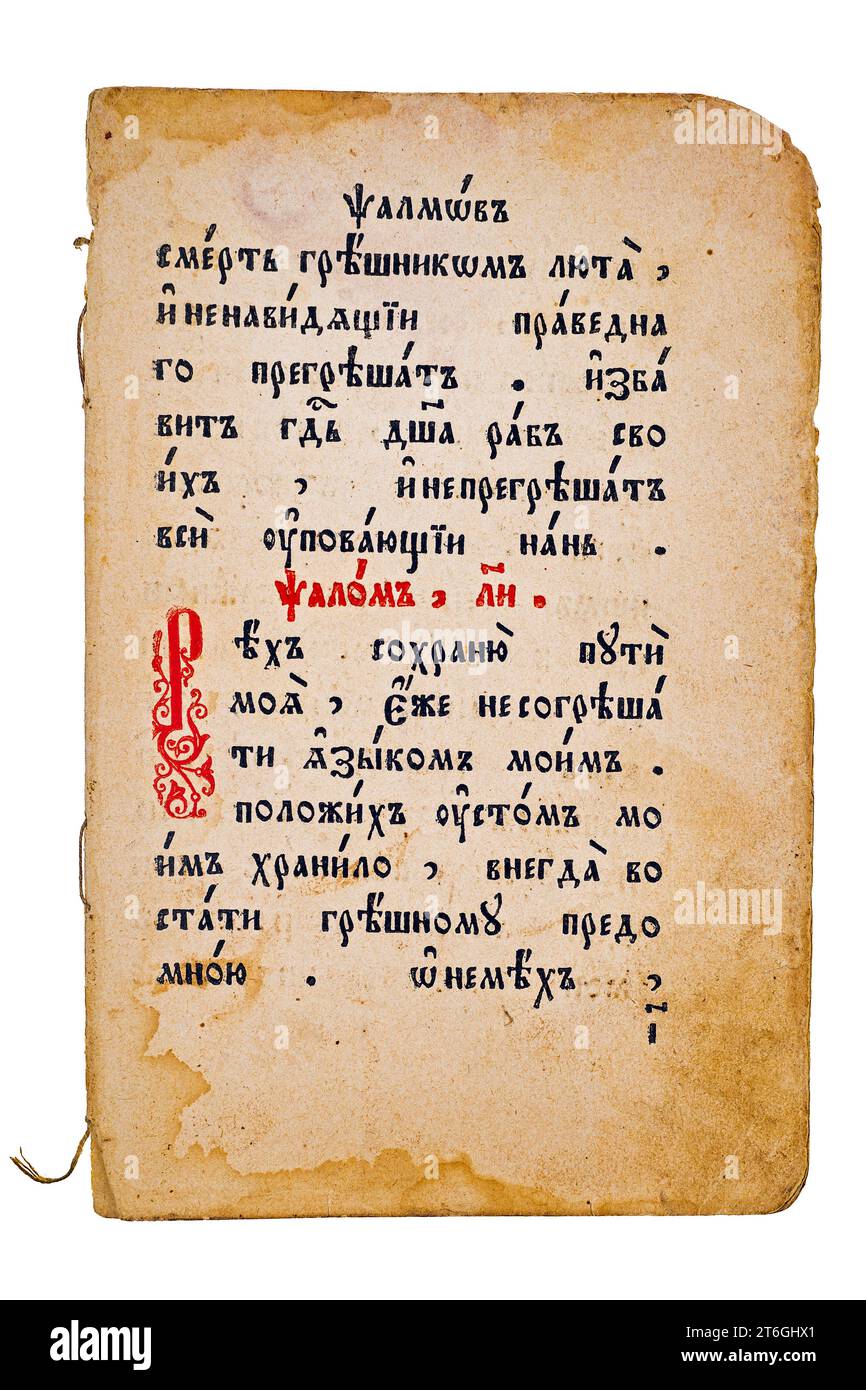 ѱалмѡ́въ
сме́рть грѣ́шникѡмъ люта̀ ,
и҆ ненави́дѧщїи пра́ведна
го прегрѣша́тъ . и҆зба́
витъ гд҇ь дш҃а ра́бъ сво
и́хъ , и҆ непрегрѣша́тъ
вси̇̀ ᲂу҆пова́ющїи на́нь .
ѱало́мъ , л҃и .
Рѣ́хъ сохраню̀ пꙋти̇̀
моѧ̀ , є҆́же несогрѣша́
ти ѧ҆зы́комъ мои́мъ .
положи́хъ ᲂу҆сто́мъ мо
и́мъ храни́ло , внегда̀ во
ста́ти грѣ́шномꙋ предо
мно́ю . ѡ҆немѣ́хъ ,
і҃
alamy
alamy
Image ID: 2T6GHX1
www.alamy.com